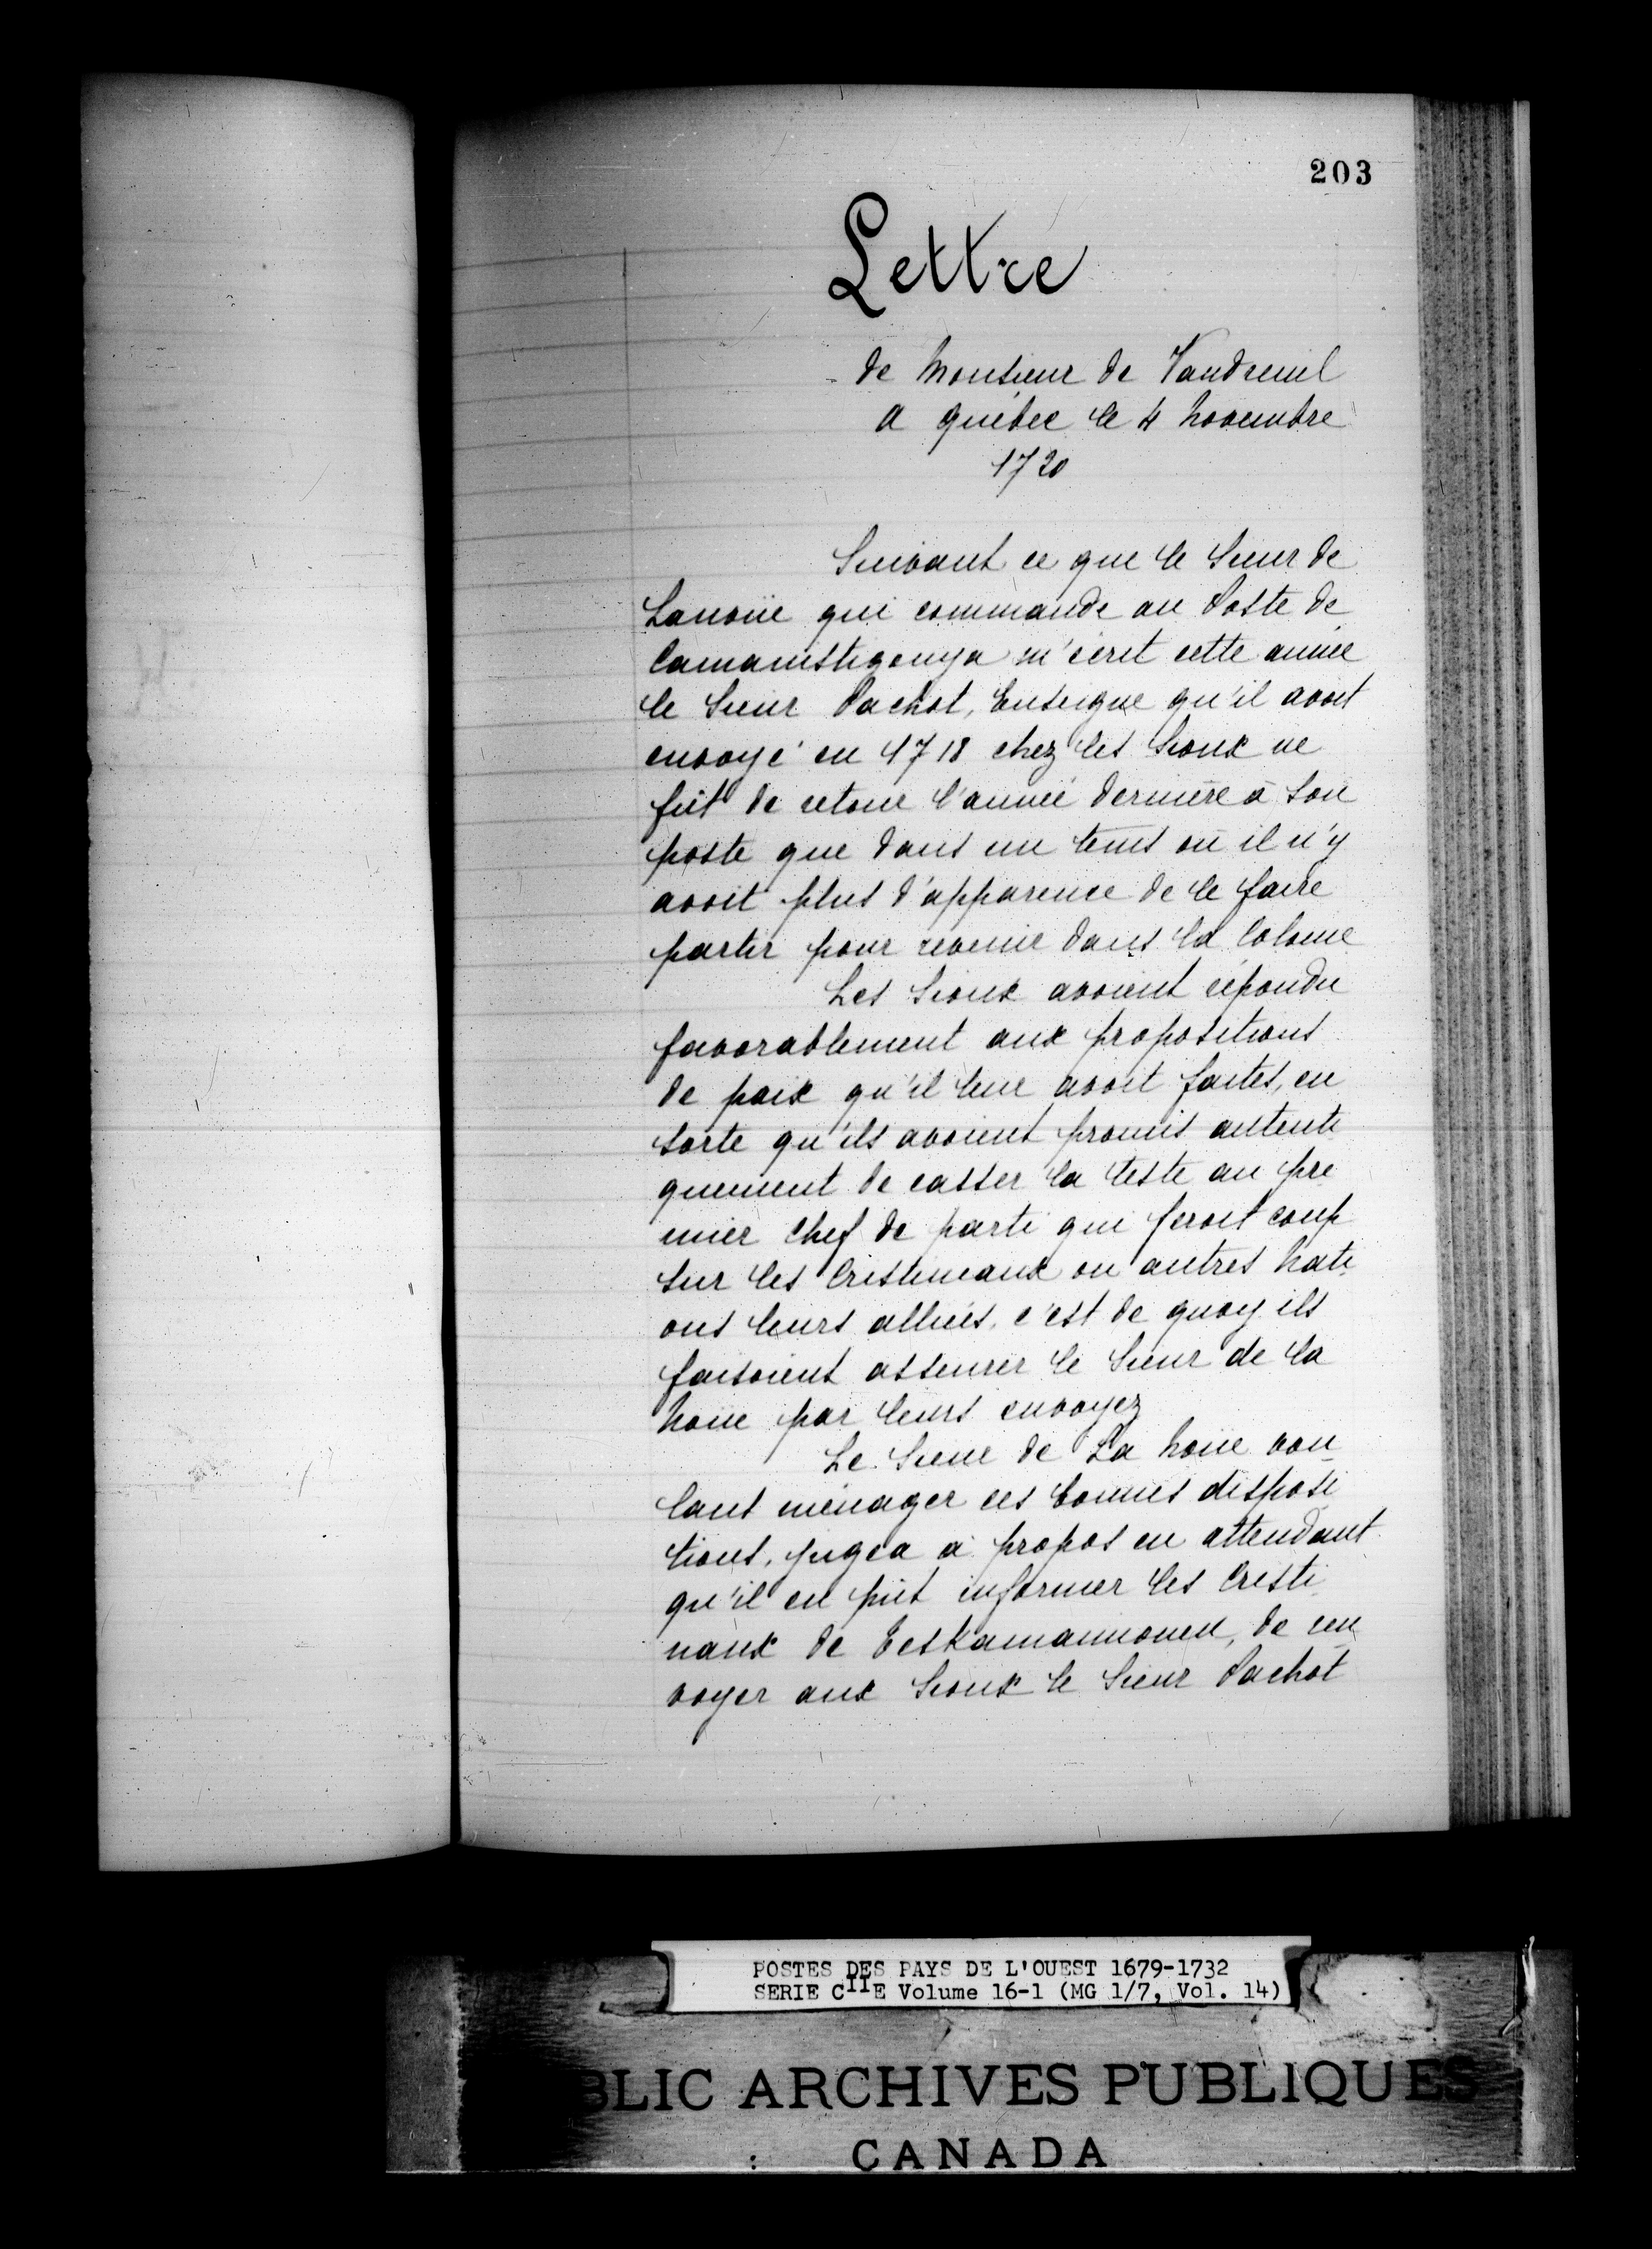 203
Lettre
de Monsieur de Vaudreuil
A québec le 4 Novembre
1720
Suivant ce que le Sieur de
Lanoüe qui commande au Poste de
Camanistigouya m'écrit cette année
le Sieur Pachot, Enseigne qu'il avoit
envoyé en 1718 chez les Sioux ne
fût de retour l'année dernière à Son
poste que dans un tems où il n'y
avoit plus d'apparence de le faire
partir pour revenir dans la Colonie
Les Sioux avoient répondu
favorablement aux propositions
de paix qu'il leur avoit faites, en
sorte qu'ils avoient promis autenti
quement de casser la teste au pre
mier Chef de parti qui feroit coup
sur les Cristineaux ou autres Nati
ons leurs alliés. c'est de quoy ils
faisoient asseurer le Sieur de la
Noüe par leurs envoyez
Le Sieur de La Noüe vou
lant ménager ces bonnes disposi
tions, jugea à propos en attendant
qu'il en pût informer les Cristi
naux de de ren
voyer aux Sioux le Sieur Pachot
POSTES DES PAYS DE L'OUEST 1679-1732
SERIE CIIE Volume 16-1 (MG 1/7, Vol. 14)
BLIC ARCHIVES PUBLIQUES
CANADA